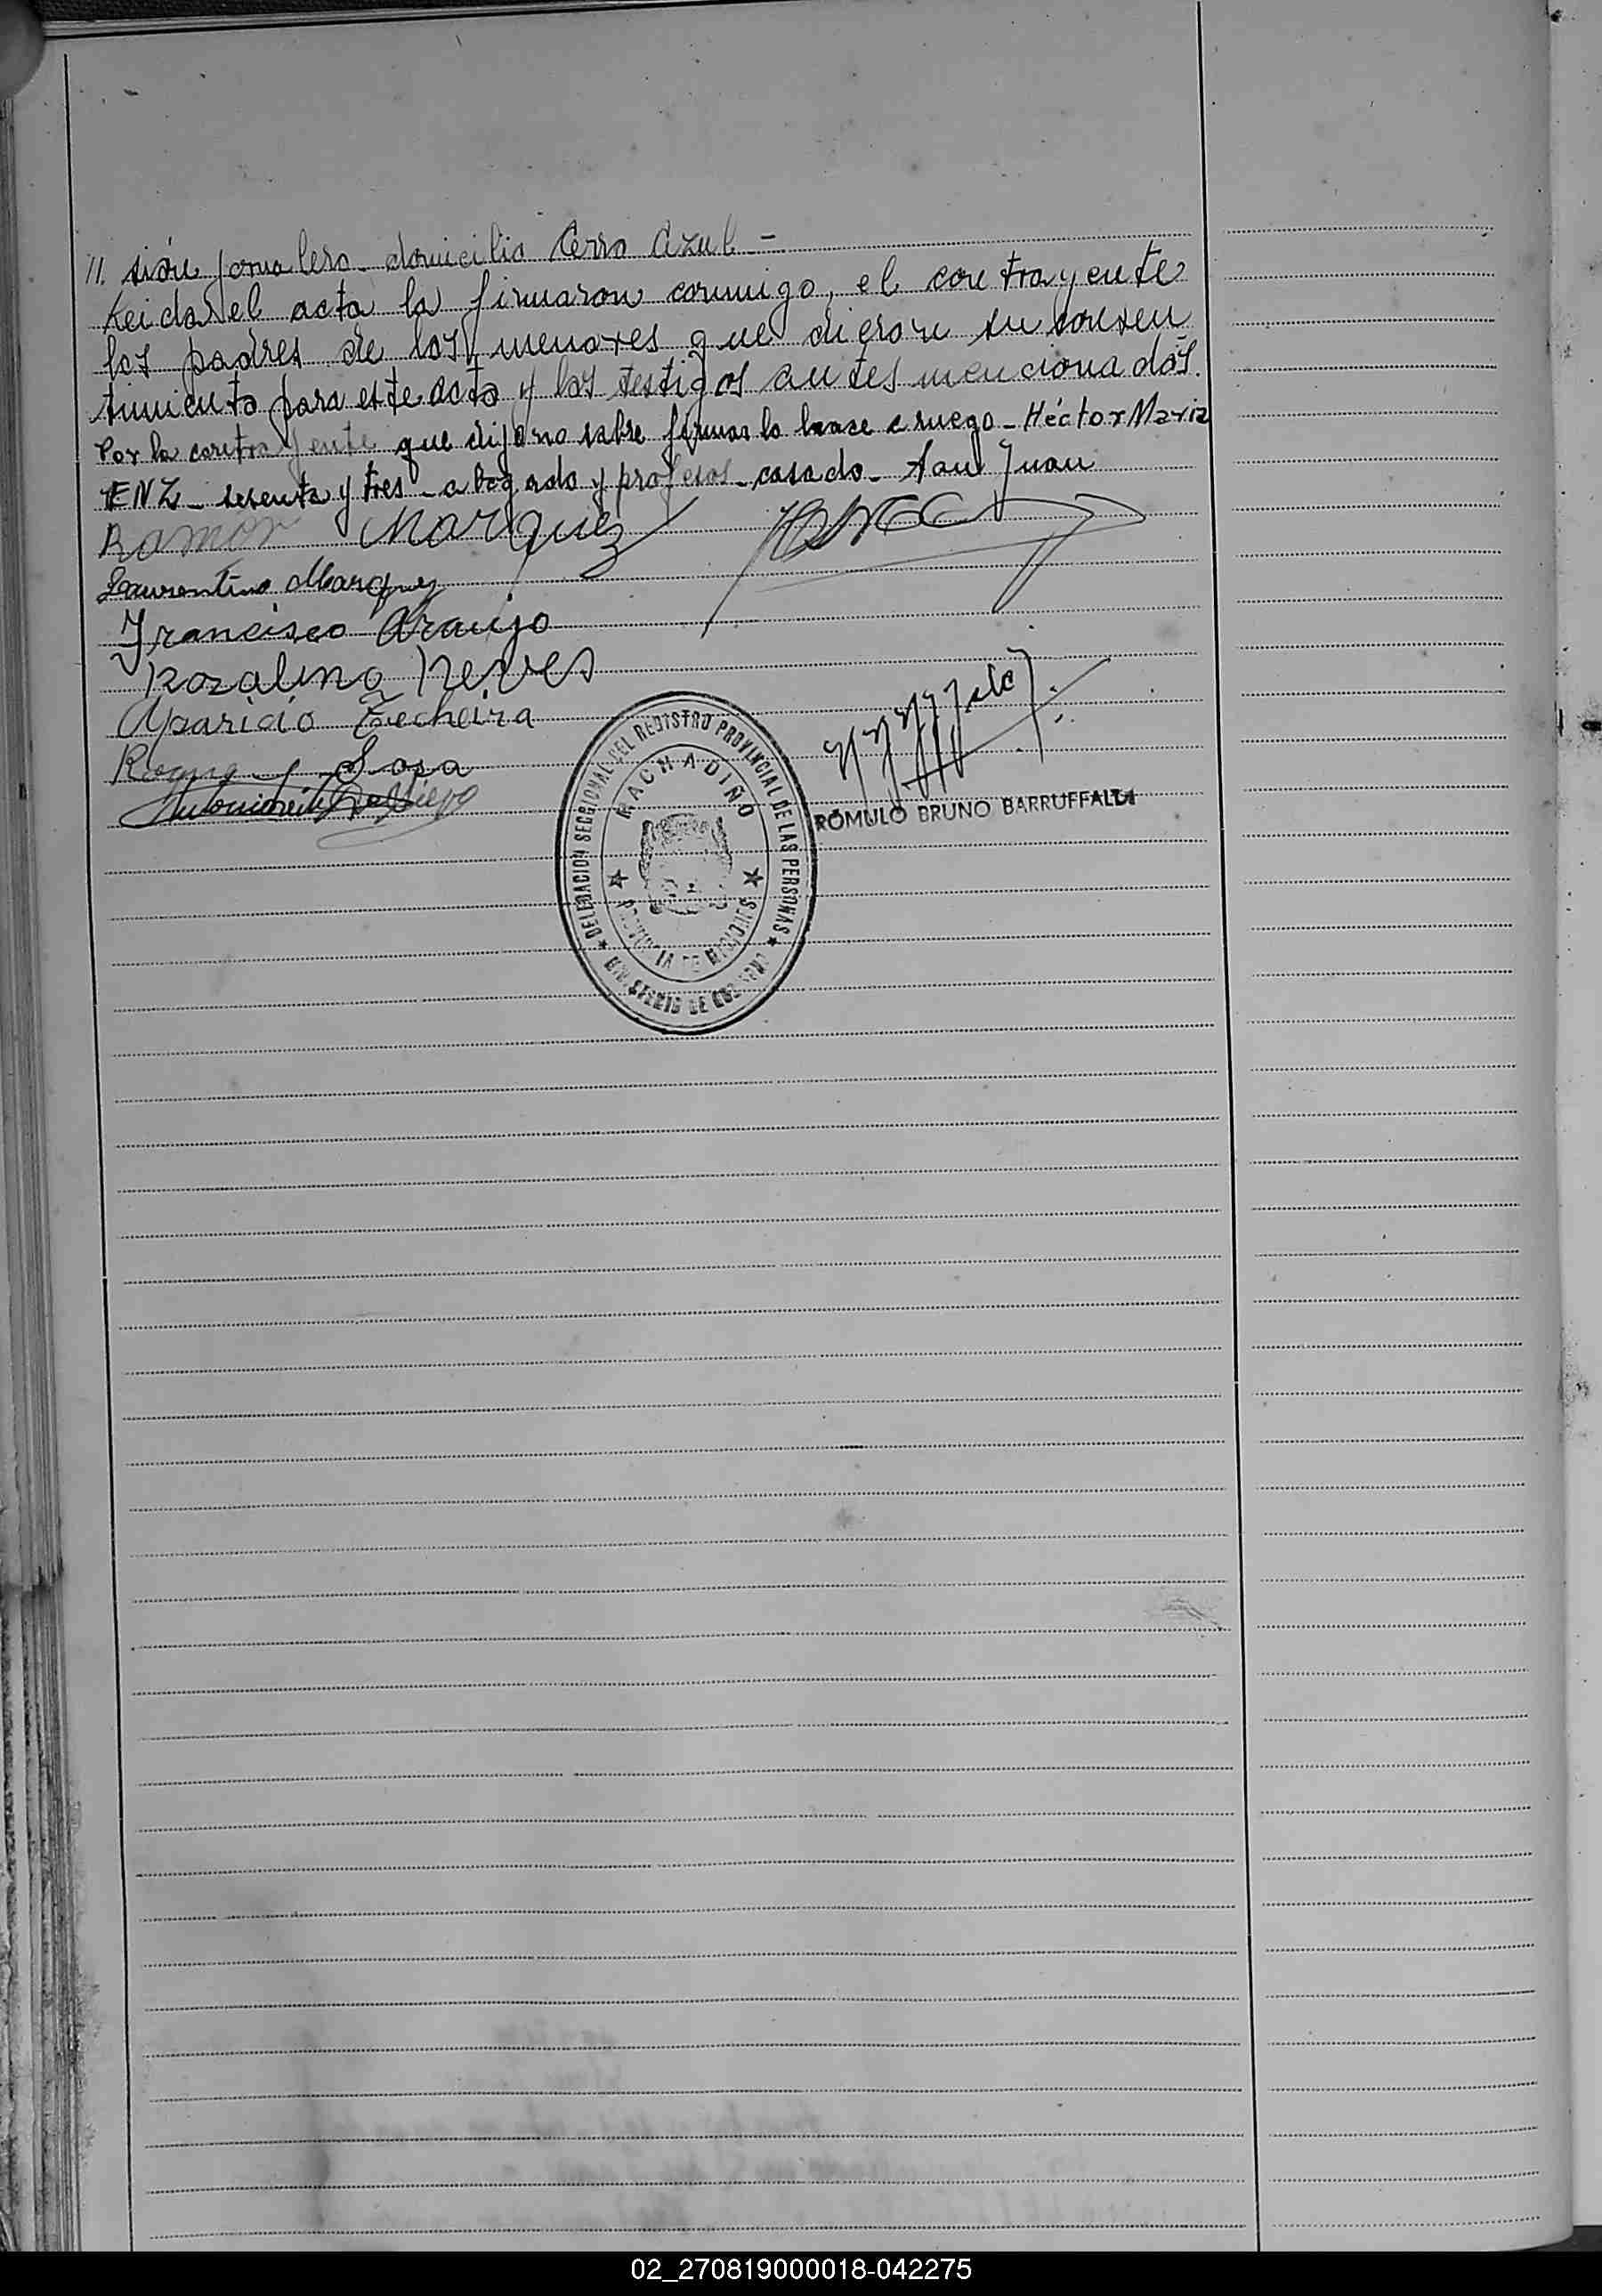 11. sión jornalero - domicilio Cerro Azul -
Leida el acta la firmaron conmigo, el contrayente
los padres de los menores que dieron su consen
timiento para este acto y los testigos antes mencionados.
Por la contrayente que dijo no sabre firmar lo hace a ruego - Héctor Maria
ENZ - sesenta y tres - abogado y profesor - casado - San Juan
Ramon Marquez
Laurentino Marquez
Francisco Araujo
Rozalino Neves
Aparicio Techeira
Sosa
ROMULO BRUNO BARRUFFALDI
DELEGACION SECCIONAL DEL REGISTRO PROVINCIAL DE LAS PERSONAS
MACHADIÑO
PROVINCIA DE MISIONES
MINISTERIO DE GOBIERNO
02_270819000018-042275